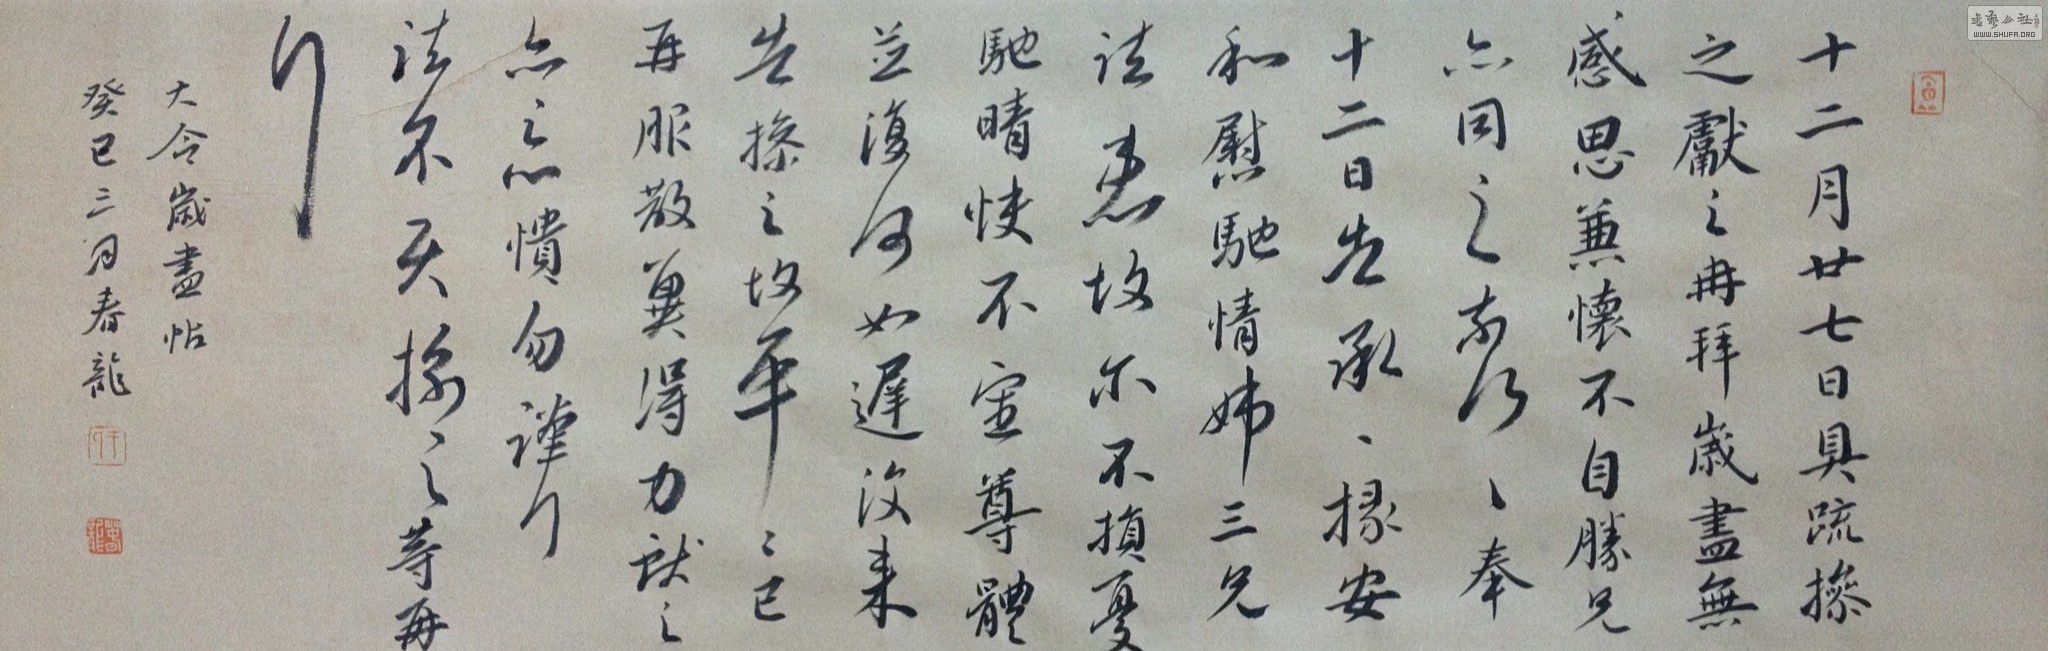 十二月廿七日具疏操
之獻之冉拜歲盡無
感思兼懷不自勝兄
亦同之奉
十二日告承安
和慰馳情姊三兄
諸患故尓不損憂
馳晴快不宣尊體
並復何如遲後來
告操之故平已
再服散冀得力獻之
亦惡憒勿謹
諸不具操之等再
行
大令歲盡帖
癸巳三月春龍
書藝公社
WWW.SHUFA.ORG